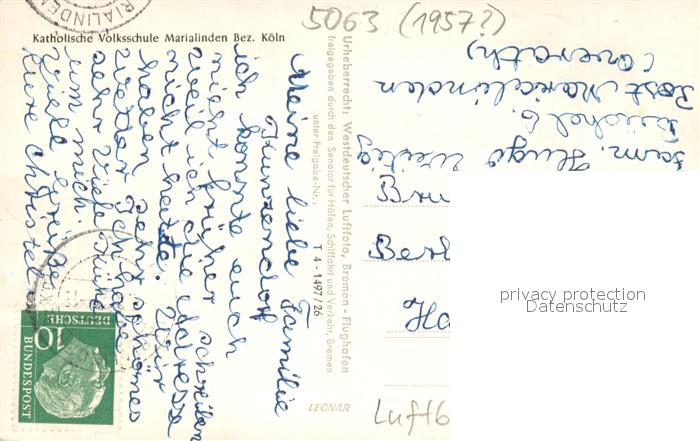 5063 (1957?)
MARIALINDEN
Katholische Volksschule Marialinden Bez. Köln
Meine liebe Familie
Kunzendorf
ich konnte euch
nicht früher schreiben
weil ich die Adresse
nicht hatte. Wir
haben sehr schönes
Wetter. Ich habe
sehr viele Kinder
um mich.
Viele Grüße
Eure Christel
Urheberrecht: Westdeutscher Luftfoto, Bremen - Flughafen
freigegeben durch den Senator für Häfen, Schiffahrt und Verkehr, Bremen
unter Freigabe-Nr.: T 4 - 1497/26
LEONAR
Fam. Hugo
Post Marialinden
(Overath)
Ber
Ha
Luftb
privacy protection
Datenschutz
10
DEUTSCHE
BUNDESPOST